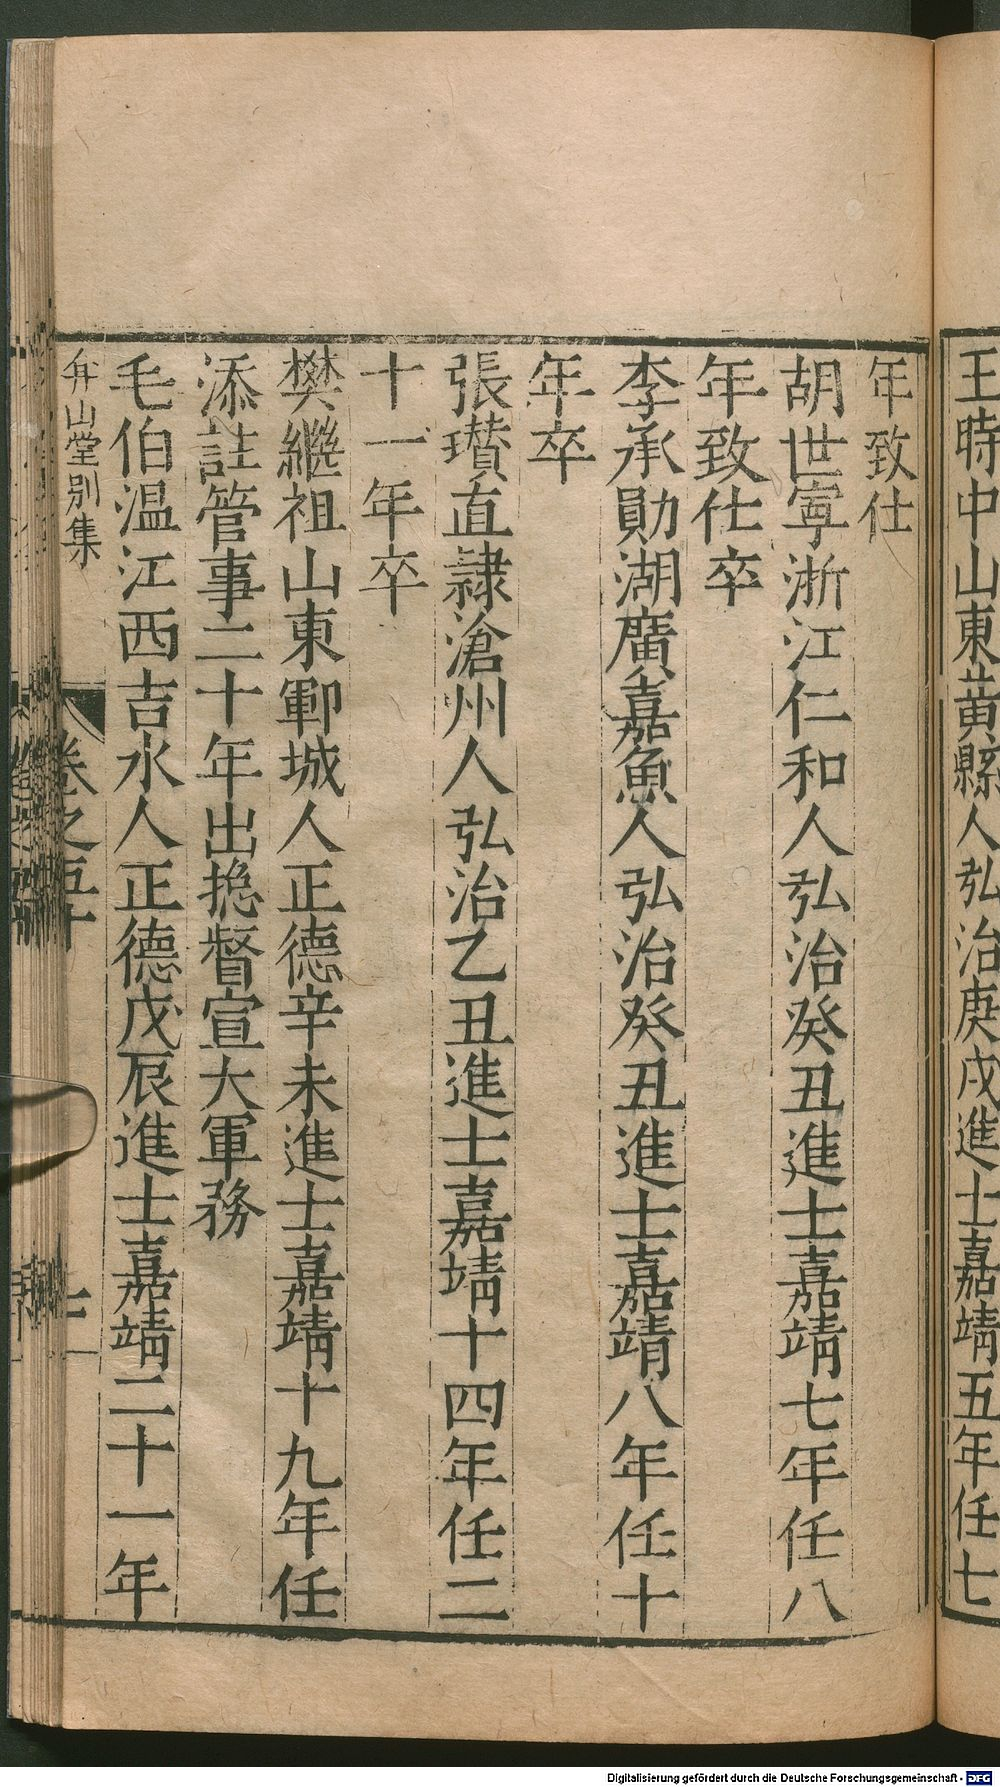 王時中山東黄縣人弘治庚戌進士嘉靖五年任七
年致仕
胡世寧浙江仁和人弘治癸丑進士嘉靖七年任八
年致仕卒
李承勛湖廣嘉魚人弘治癸丑進士嘉靖八年任十
年卒
張瓚直隸滄州人弘治乙丑進士嘉靖十四年任二
十一年卒
樊繼祖山東鄆城人正德辛未進士嘉靖十九年任
添註管事二十年出揔督宣大軍務
毛伯溫江西吉水人正德戊辰進士嘉靖二十一年
弇山堂別集
卷之五十
Digitalisierung gefördert durch die Deutsche Forschungsgemeinschaft - DFG